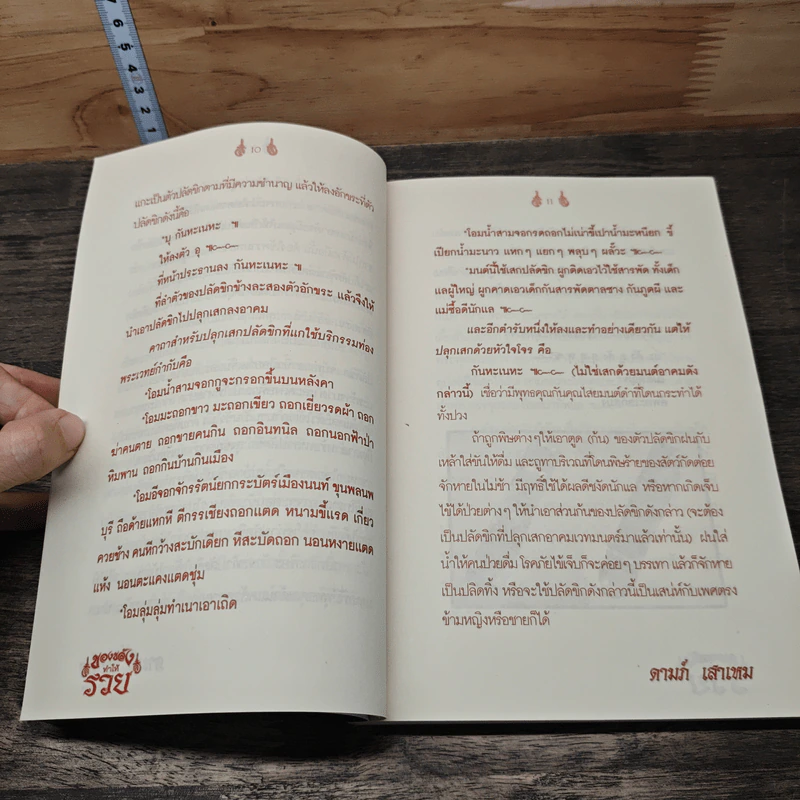 7
6
5
4
3
2
1
๖๐
แกะเป็นตัวปลัดขิกตามที่มีความชำนาญ แล้วให้ลงอักขระที่ตัว
ปลัดขิกดังนี้คือ
"มุ กันหะเนหะ ๚
ให้ลงตัว อุ ๚๛
ที่หน้าประธานลง กันหะเนหะ ๚
ที่ลำตัวของปลัดขิกข้างละสองตัวอักขระ แล้วจึงให้
นำเอาปลัดขิกไปปลุกเสกลงอาคม
คาถาสำหรับปลุกเสกปลัดขิกที่แกใช้บริกรรมท่อง
พระเวทย์กำกับคือ
"โอมน้ำสามจอกกูจะกรอกขึ้นบนหลังคา
"โอมมะถอกขาว มะถอกเขียว ถอกเยี่ยวรดผ้า ถอก
ฆ่าคนตาย ถอกขายคนกิน ถอกอินทนิล ถอกนอกฟ้าป่า
หิมพาน ถอกกินบ้านกินเมือง
"โอมอีจอกจักรรัตน์ยกกระบัตร์เมืองนนท์ ขุนพลนพ
บุรี ถือด้ายแหกหี ตีกรรเชียงถอกแตด หนามขี้แรด เกี่ยว
ควยช้าง คนทีกว้างสะบักเดียก หีสะบัดถอก นอนหงายแตด
แห้ง นอนตะแคงแตดชุ่ม
"โอมลุ่มลุ่มทำเนาเอาเถิด
ของขลัง
ทำให้
รวย
๖๑
"โอมน้ำสามจอกรดถอกไม่เน่าขี้เปาน้ำมะหนียก ขี้
เปียกน้ำมะนาว แหกๆ แยกๆ พลุบๆ ผลั้วะ ๚๛
"มนต์นี้ใช้เสกปลัดขิก ผูกติดเอวไว้ใช้สารพัด ทั้งเด็ก
แลผู้ใหญ่ ผูกคาดเอวเด็กกันสารพัดตาลซาง กันภูตผี และ
แม่ซื้อดีนักแล ๚๛
และอีกตำรับหนึ่งให้ลงและทำอย่างเดียวกัน แต่ให้
ปลุกเสกด้วยหัวใจโจร คือ
กันหะเนหะ ๚๛ (ไม่ใช่เสกด้วยมนต์อาคมดัง
กล่าวนี้) เชื่อว่ามีพุทธคุณกันคุณไสยมนต์ดำที่โดนกระทำได้
ทั้งปวง
ถ้าถูกพิษต่างๆให้เอาตูด (ก้น) ของตัวปลัดขิกฝนกับ
เหล้าใส่ขันให้ดื่ม และถูทาบริเวณที่โดนพิษร้ายของสัตว์กัดต่อย
จักหายในไม่ช้า มีฤทธิ์ใช้ได้ผลดีชงัดนักแล หรือหากเกิดเจ็บ
ไข้ได้ป่วยต่างๆ ให้นำเอาส่วนก้นของปลัดขิกดังกล่าว (จะต้อง
เป็นปลัดขิกที่ปลุกเสกอาคมเวทมนตร์มาแล้วเท่านั้น) ฝนใส่
น้ำให้คนป่วยดื่ม โรคภัยไข้เจ็บก็จะค่อยๆ บรรเทา แล้วก็จักหาย
เป็นปลิดทิ้ง หรือจะใช้ปลัดขิกดังกล่าวนี้เป็นเสน่ห์กับเพศตรง
ข้ามหญิงหรือชายก็ได้
ดามภ์ เสาเหม